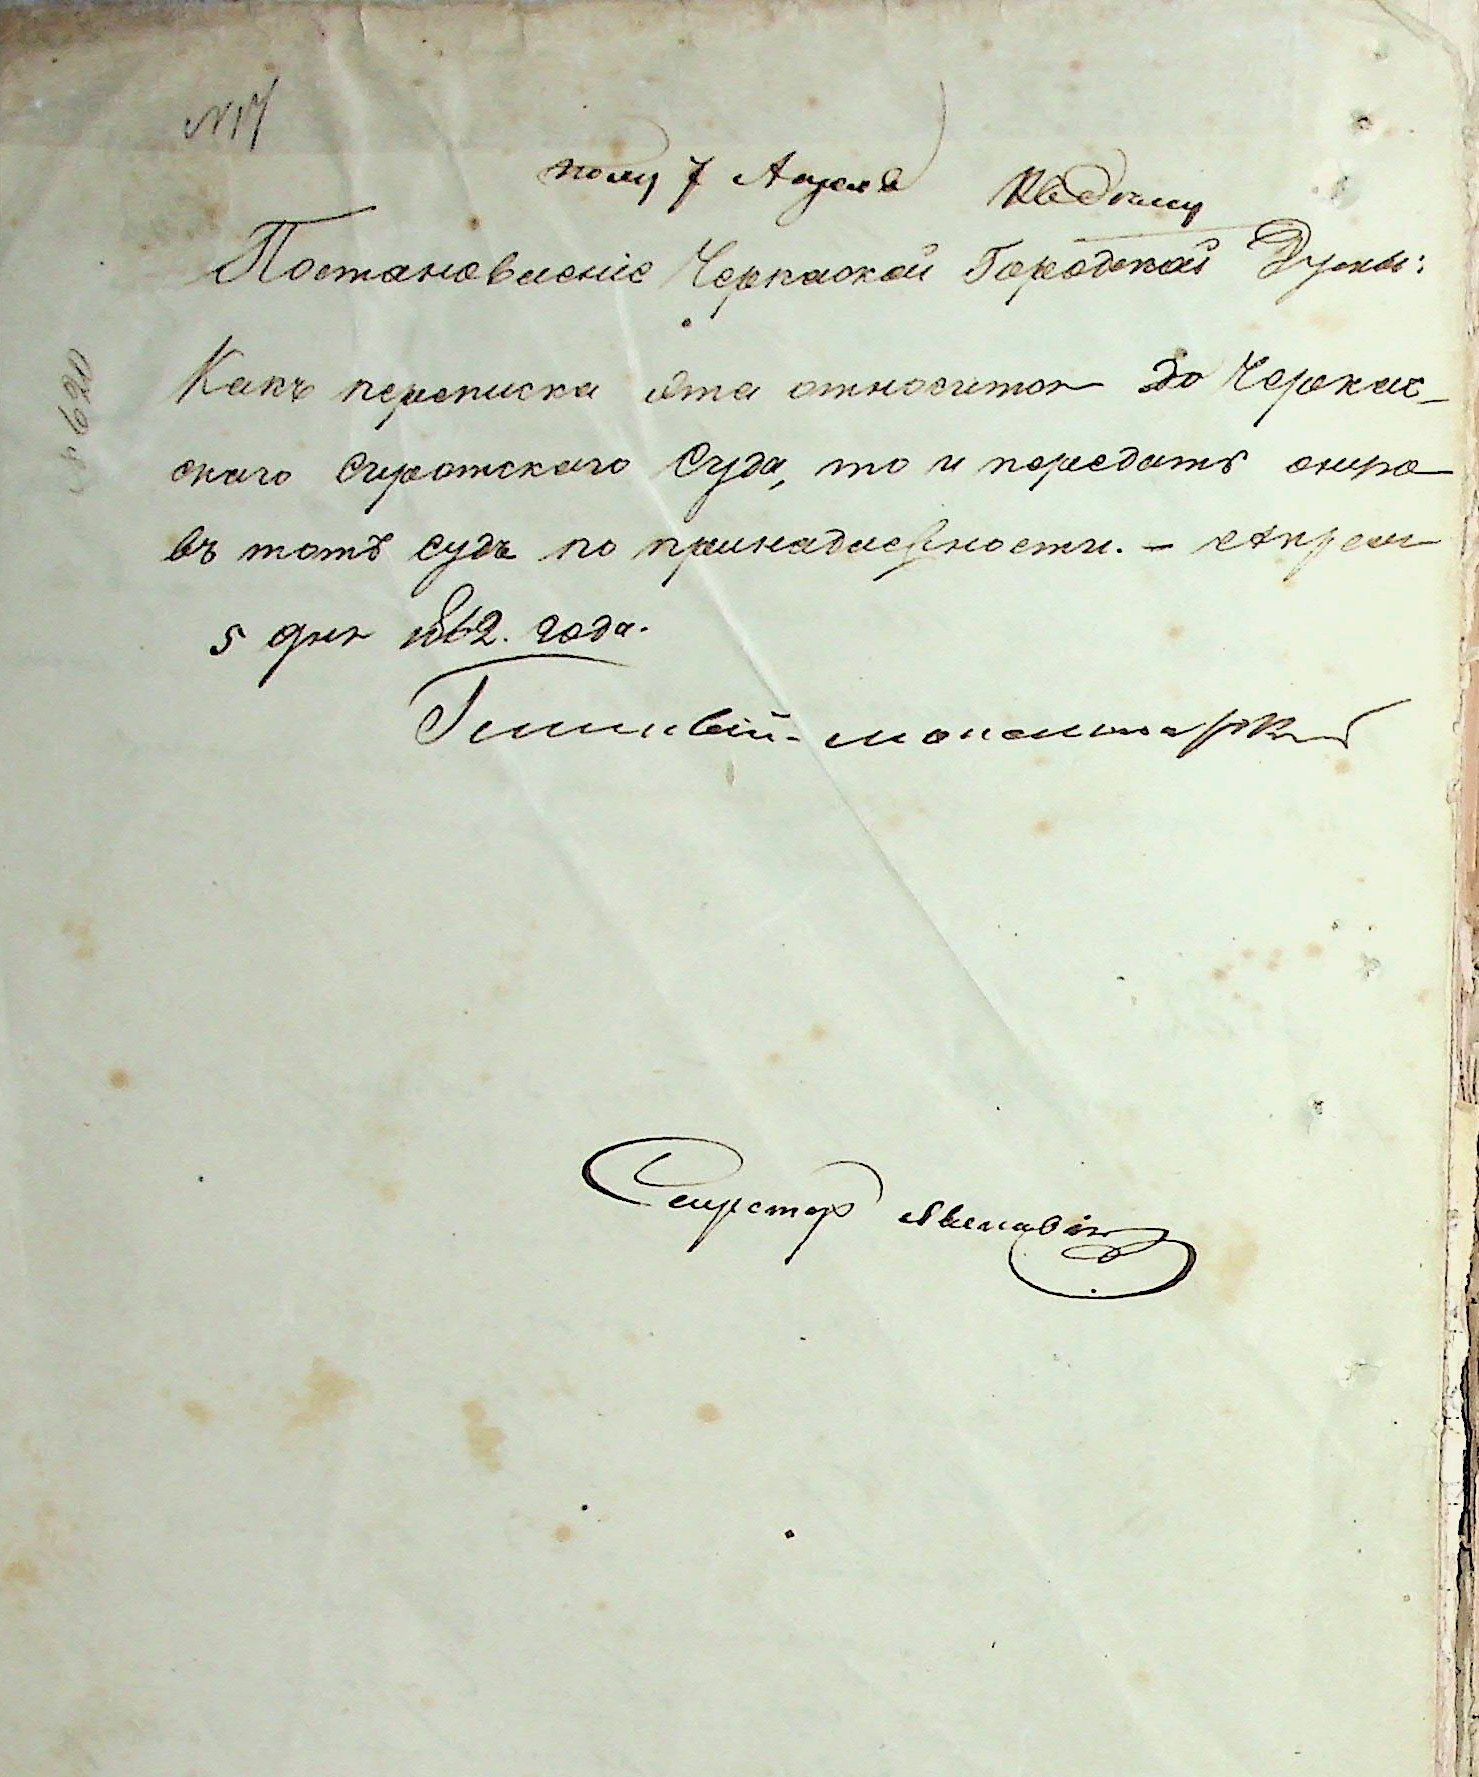 № 17
полу 7 Апреля
Постановленіе Черкаской Городской Думы:
№ 620
Какъ переписка эта относится до Черкас-
скаго Сиротскаго Суда, то и передать оную
въ тотъ Судъ по принадлежности. – Апреля
5 дня 1862. года.
Секретарь